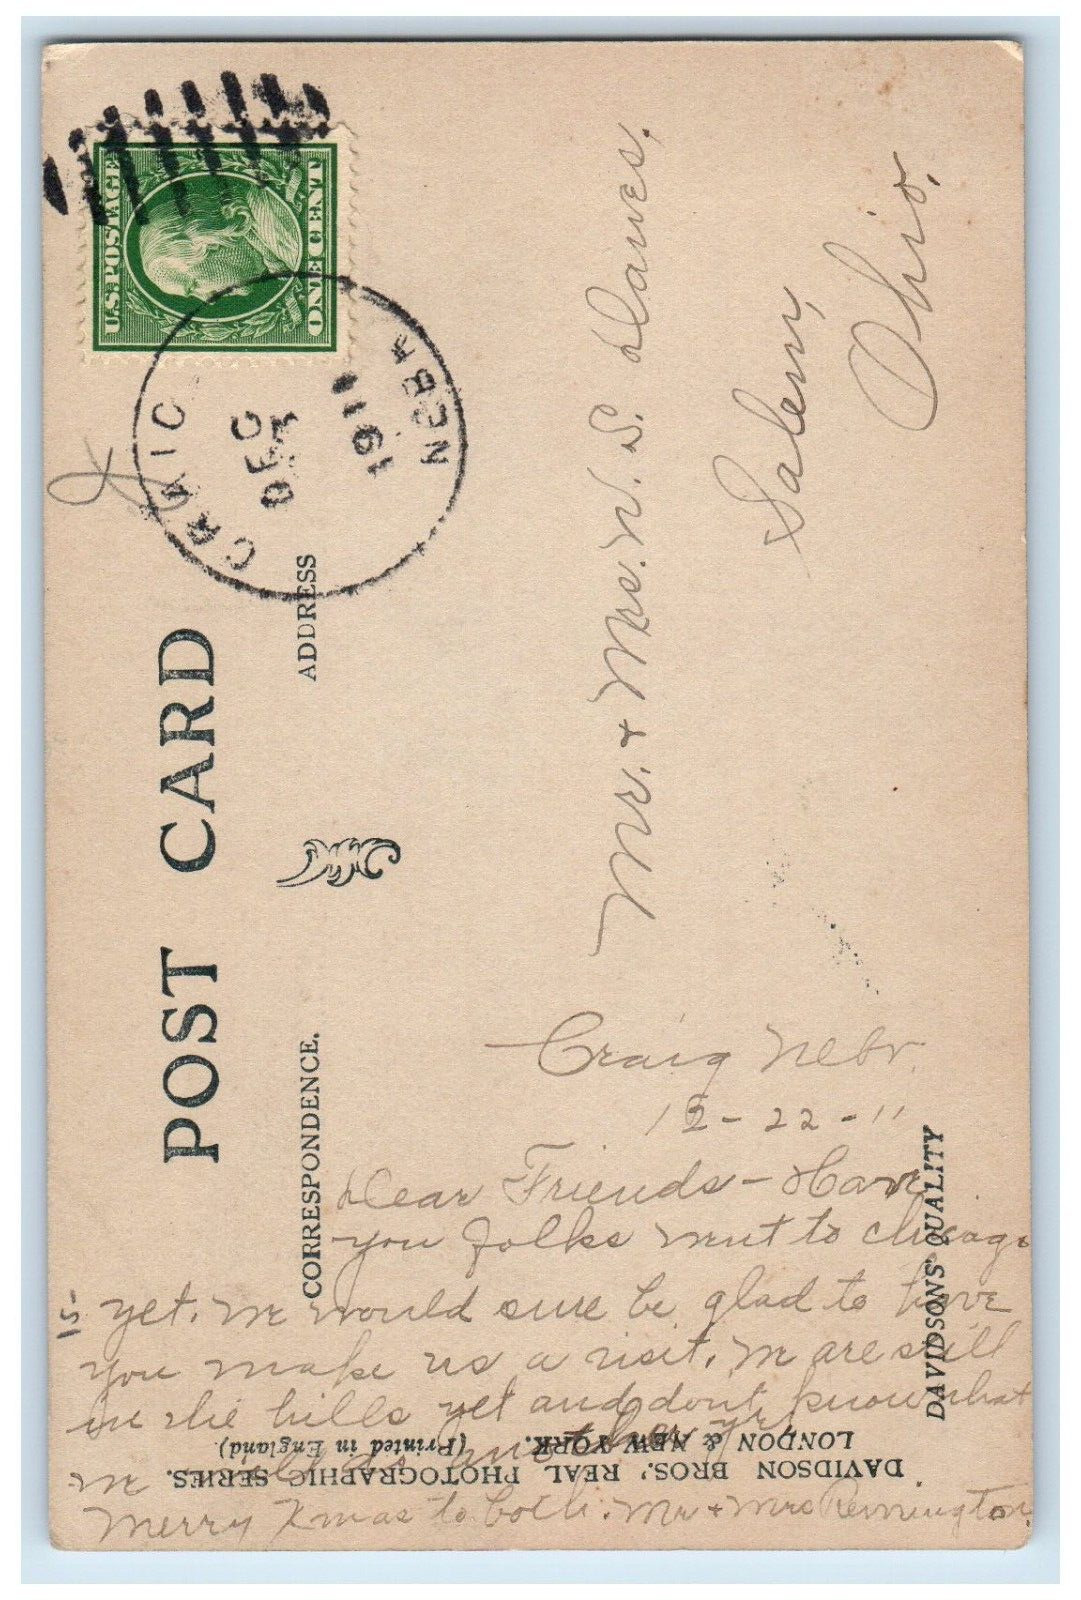 POST CARD
CORRESPONDENCE.
ADDRESS
U.S. POSTAGE
ONE CENT
CRAIG
DEC
1911
NEBR
Mr. & Mrs. W. S. Dawes,
Salem,
Ohio.
Craig Nebr.
12-22-11
Dear Friends - Have
you folks went to Chicago
yet. We would sure be glad to have
you make us a visit. We are still
in the hills yet and don't know what
we will do another yr.
Merry Xmas to both. Mr & Mrs Remington.
DAVIDSON BROS.' REAL PHOTOGRAPHIC SERIES.
LONDON & NEW YORK. (Printed in England).
DAVIDSONS' QUALITY